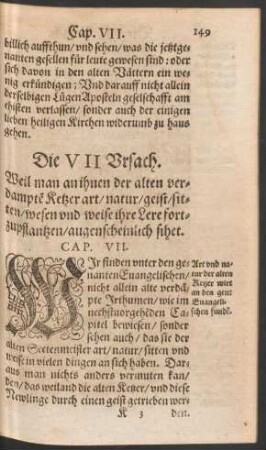 Cap. VII. 149
billich auffthun/vnd sehen/was die jetztge-
nanten gesellen für leute gewesen sind: oder
sich davon in den alten Vättern ein we-
nig erkündigen; Vnd darauff nicht allein
derselbigen LügenAposteln geselschafft am
ehisten verlassen/sonder auch der einigen
lieben heiligen Kirchen widerumb zu haus
gehen.
Die VII Vrsach.
Weil man an ihnen der alten ver-
dampte Ketzer art/natur/geist/sit-
ten/wesen vnd weise ihre Lere fort-
zupflantzen/augenscheinlich sihet.
CAP. VII.
WJr finden vnter den ge-
nanten Evangelischen/
nicht allein alte verdä-
pte Irthumen/wie im
nechstuorgehēden Ca-
pitel bewiesen/sonder
sehen auch/das sie der
alten Sectenmeister art/natur/sitten vnd
weise in vielen dingen an sich haben. Dar-
aus man nichts anders vermuten kan/
den/das weiland die alten Ketzer/vnd diese
Newlinge durch einen geist getrieben wer-
K 3 den.
Art vnd na-
tur der alten
Ketzer wirt
an den genāt
Euangeli-
schen fundē.